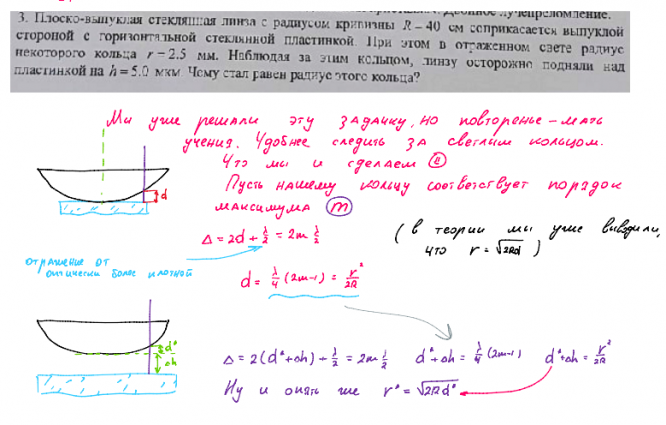 двойное лучепреломление.
3. Плоско-выпуклая стеклянная линза с радиусом кривизны R = 40 см соприкасается выпуклой
стороной с горизонтальной стеклянной пластинкой. При этом в отраженном свете радиус
некоторого кольца r = 2.5 мм. Наблюдая за этим кольцом, линзу осторожно подняли над
пластинкой на h = 5.0 мкм. Чему стал равен радиус этого кольца?
Мы уже решали эту задачку, но повторенье – мать
учения. Удобнее следить за светлым кольцом.
Что мы и сделаем
Пусть нашему кольцу соответствует порядок
максимума m
d
Δ = 2d + λ/2 = 2m λ/2
(в теории мы уже выводили,
что r = √2Rd)
отражение от
оптически более плотной
d = λ/4 (2m-1) = r²/2R
d*
Δh
Δ = 2(d*+Δh) + λ/2 = 2m λ/2 d*+Δh = λ/4 (2m-1) d*+Δh = r²/2R
Ну и опять же r* = √2Rd*